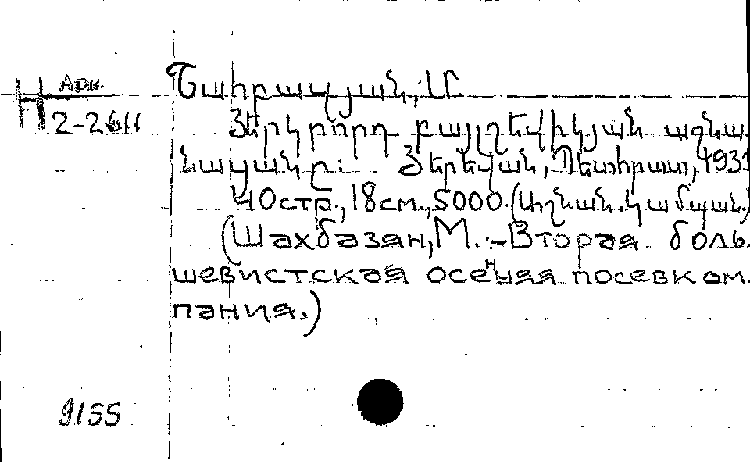 Н Арм.
2-2611
Շահբազյան, Մ
Յերկրորդ բայլշեվիկյան աշնա
նացանը: Յերեվան, Պետհրատ, 1931
40 стр., 18 см., 5000. (Աշնան. կամպան.)
(Шахбазян, М. - Вторая боль
шевистская осенняя посевком
пания.)
9155